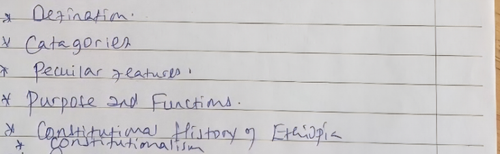 * Defination.
* Catagories
* Pecuilar features.
* Purpose and Functims.
* Constitutimal History of Ethiopia
* Constitutionalism